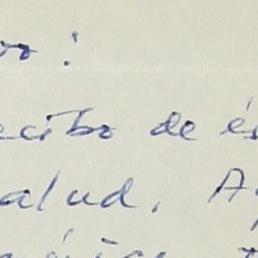 or :
ecibo de é
alud. A